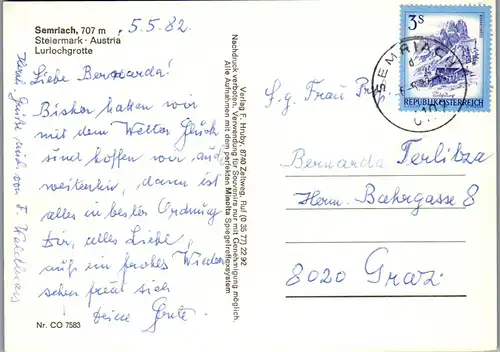 Semriach, 707 m
Steiermark · Austria
Lurlochgrotte
5.5.82.
Liebe Bernarda!
Bisher hatten wir
mit dem Wetter Glück
und hoffen wir auf
weiterhin, dann ist
alles in bester Ordnung
Dir, alles Liebe,
auf ein frohes Wieder
sehen freut sich
Deine Grete.
Nr. CO 7583
Verlag F. Hruby, 8740 Zeltweg, Ruf (0 35 77) 22 92
Nachdruck verboten. Verwendung für Souvenirs nur mit Genehmigung möglich.
Alle Aufnahmen mit dem perfekten Minolta Spiegelreflexsystem
3S
REPUBLIK ÖSTERREICH
SEMRIACH
S.g. Frau Prof.
Bernarda Terlitza
Herm. Bahrgasse 8
8020 Graz